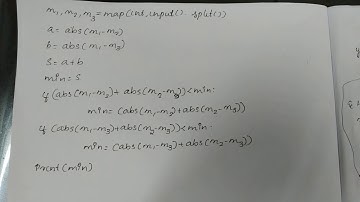 m₁, m₂, m₃ = map(int, input().split())
a = abs(m₁-m₂)
b = abs(m₁-m₃)
S = a+b
min = S
if (abs(m₁-m₂) + abs(m₂-m₃)) < min:
min = (abs(m₁-m₂) + abs(m₂-m₃))
if (abs(m₁-m₃) + abs(m₂-m₃)) < min:
min = (abs(m₁-m₃) + abs(m₂-m₃))
print(min)